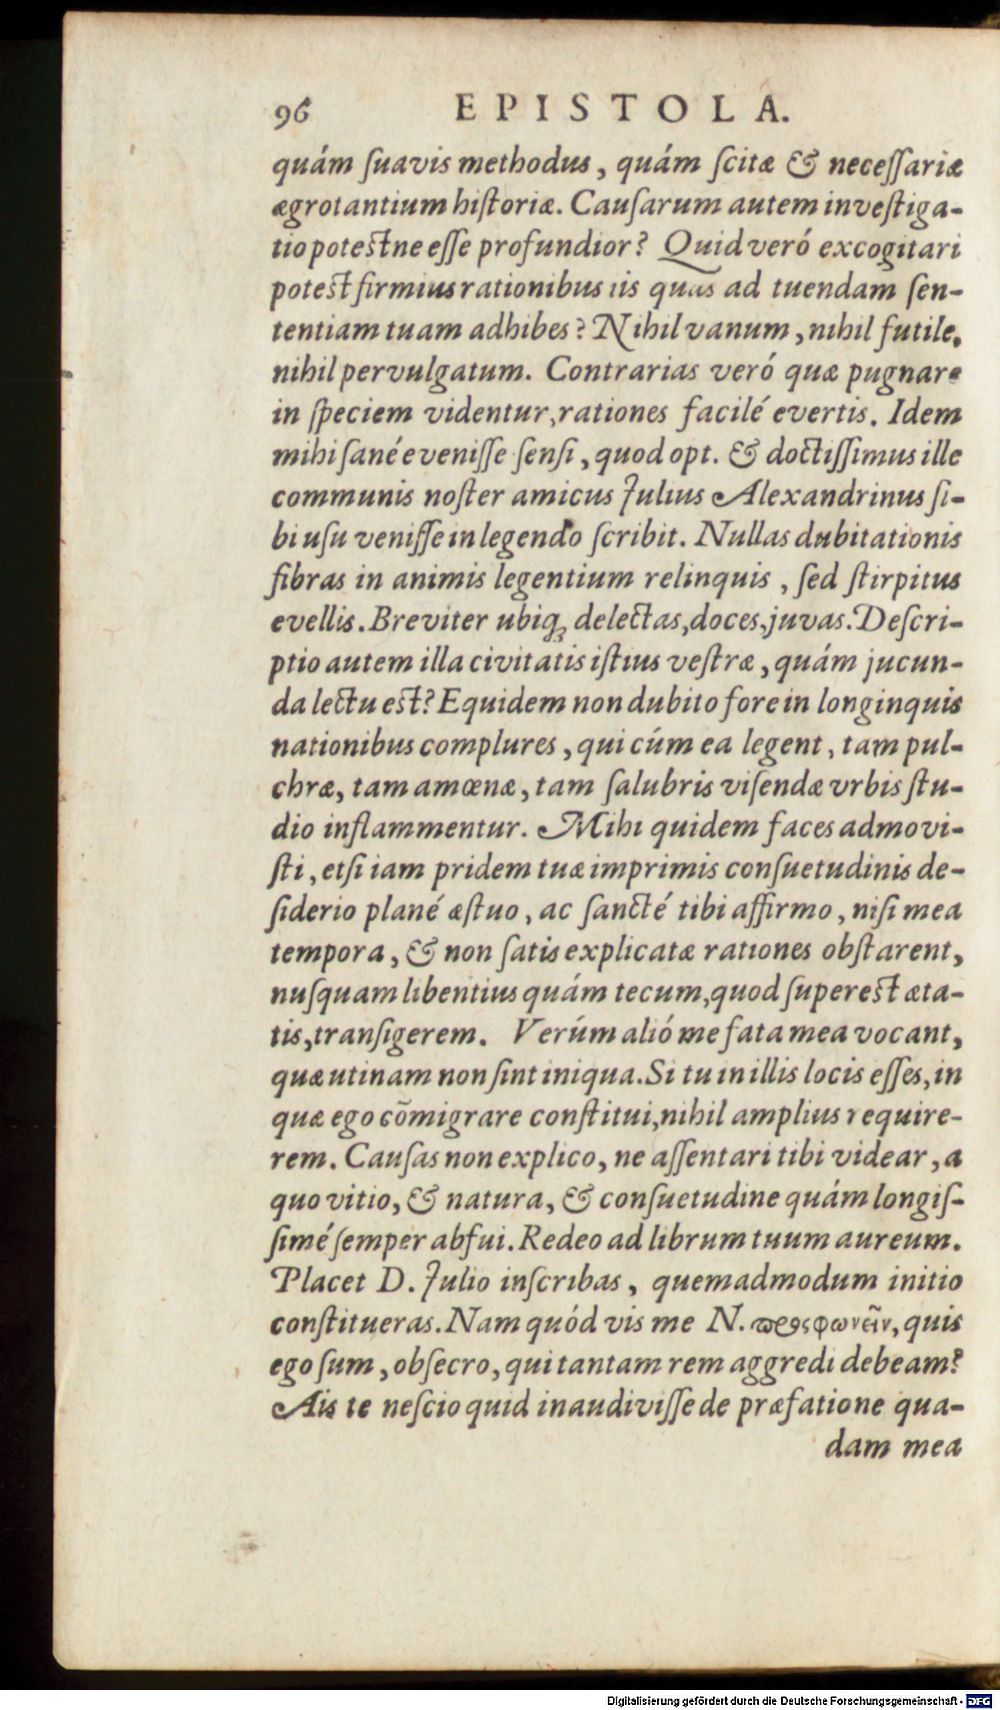 96 EPISTOLA.
quám ſuavis methodus, quám ſcitæ & neceſſariæ
ægrotantium hiſtoriæ. Cauſarum autem inveſtiga-
tio poteſtne eſſe profundior? Quid veró excogitari
poteſt firmius rationibus iis quas ad tuendam ſen-
tentiam tuam adhibes? Nihil vanum, nihil futile,
nihil pervulgatum. Contrarias veró quæ pugnare
in ſpeciem videntur, rationes facilé evertis. Idem
mihi ſané eveniſſe ſenſi, quod opt. & doctiſſimus ille
communis noſter amicus Julius Alexandrinus ſi-
bi uſu veniſſe in legendo ſcribit. Nullas dubitationis
fibras in animis legentium relinquis, ſed ſtirpitus
evellis. Breviter ubiq; delectas, doces, juvas. Deſcri-
ptio autem illa civitatis iſtius veſtræ, quám jucun-
da lectu eſt? Equidem non dubito fore in longinquis
nationibus complures, qui cúm ea legent, tam pul-
chræ, tam amœnæ, tam ſalubris viſendæ vrbis ſtu-
dio inflammentur. Mihi quidem faces admovi-
ſti, etſi iam pridem tuæ imprimis conſuetudinis de-
ſiderio plané æſtuo, ac ſancté tibi affirmo, niſi mea
tempora, & non ſatis explicatæ rationes obſtarent,
nuſquam libentius quám tecum, quod ſupereſt æta-
tis, tranſigerem. Verúm alió me fata mea vocant,
quæ utinam non ſint iniqua. Si tu in illis locis eſſes, in
quæ ego cõmigrare conſtitui, nihil amplius require-
rem. Cauſas non explico, ne aſſentari tibi videar, a
quo vitio, & natura, & conſuetudine quám longiſ-
ſimé ſemper abfui. Redeo ad librum tuum aureum.
Placet D. Julio inſcribas, quemadmodum initio
conſtitueras. Nam quód vis me N. ϖροςφωνεῖν, quis
ego ſum, obſecro, qui tantam rem aggredi debeam?
Ais te neſcio quid inaudiviſſe de præfatione qua-
dam mea
Digitalisierung gefördert durch die Deutsche Forschungsgemeinschaft - DFG